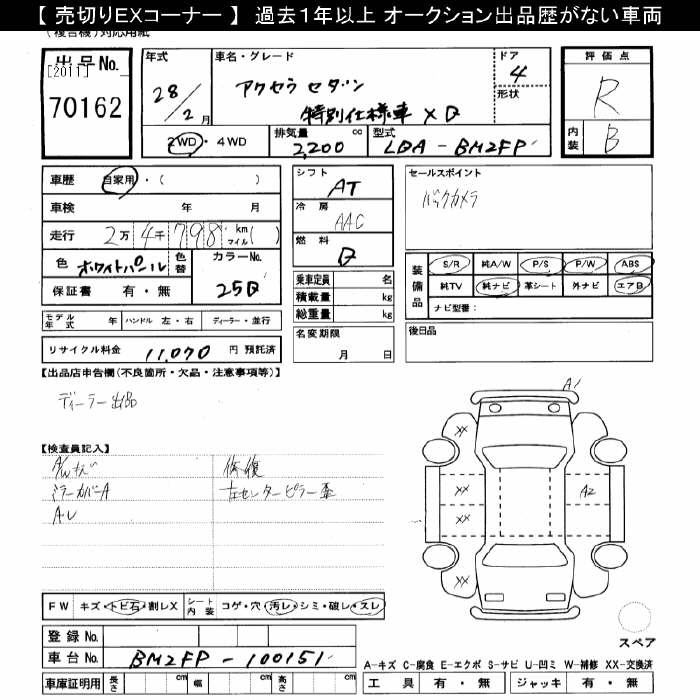 【 売切りEXコーナー 】 過去1年以上 オークション出品歴がない車両
(複合機)対応用紙
出品No.
[2011]
70162
年式
28/2月
車名・グレード
アクセラ セダン
特別仕様車 XD
ドア
4
形状
評価点
R
内装
B
2WD・4WD
排気量
2,200 cc
型式
LDA-BM2FP
車歴 自家用・( )
車検 年 月
走行 2万4千798 km マイル( )
色 ホワイトパール 色替
カラーNo.
25D
保証書 有・無
モデル年式 年 ハンドル 左・右 ディーラー・並行
リサイクル料金 11,070 円 預託済
シフト
AT
冷房
AAC
燃料
D
乗車定員 名
積載量 kg
総重量 kg
名変期限
月 日
セールスポイント
バックカメラ
装備品
S/R 純A/W P/S P/W ABS
純TV 純ナビ 革シート 外ナビ エアB
ナビ型番:
後日品
【出品店申告欄(不良箇所・欠品・注意事項等)】
ディーラー出品
【検査員記入】
ミラーカバーA
修復
左センターピラー歪
FW キズ・トビ石・割レX シート内装 コゲ・穴・汚レ・シミ・破レ・スレ
登録No.
車台No. BM2FP-100151
車庫証明用 長さ cm 幅 cm 高さ cm
A1
XX
XX
A2
XX
XX
スペア
A-キズ C-腐食 E-エクボ S-サビ U-凹ミ W-補修 XX-交換済
工具 有・無 ジャッキ 有・無